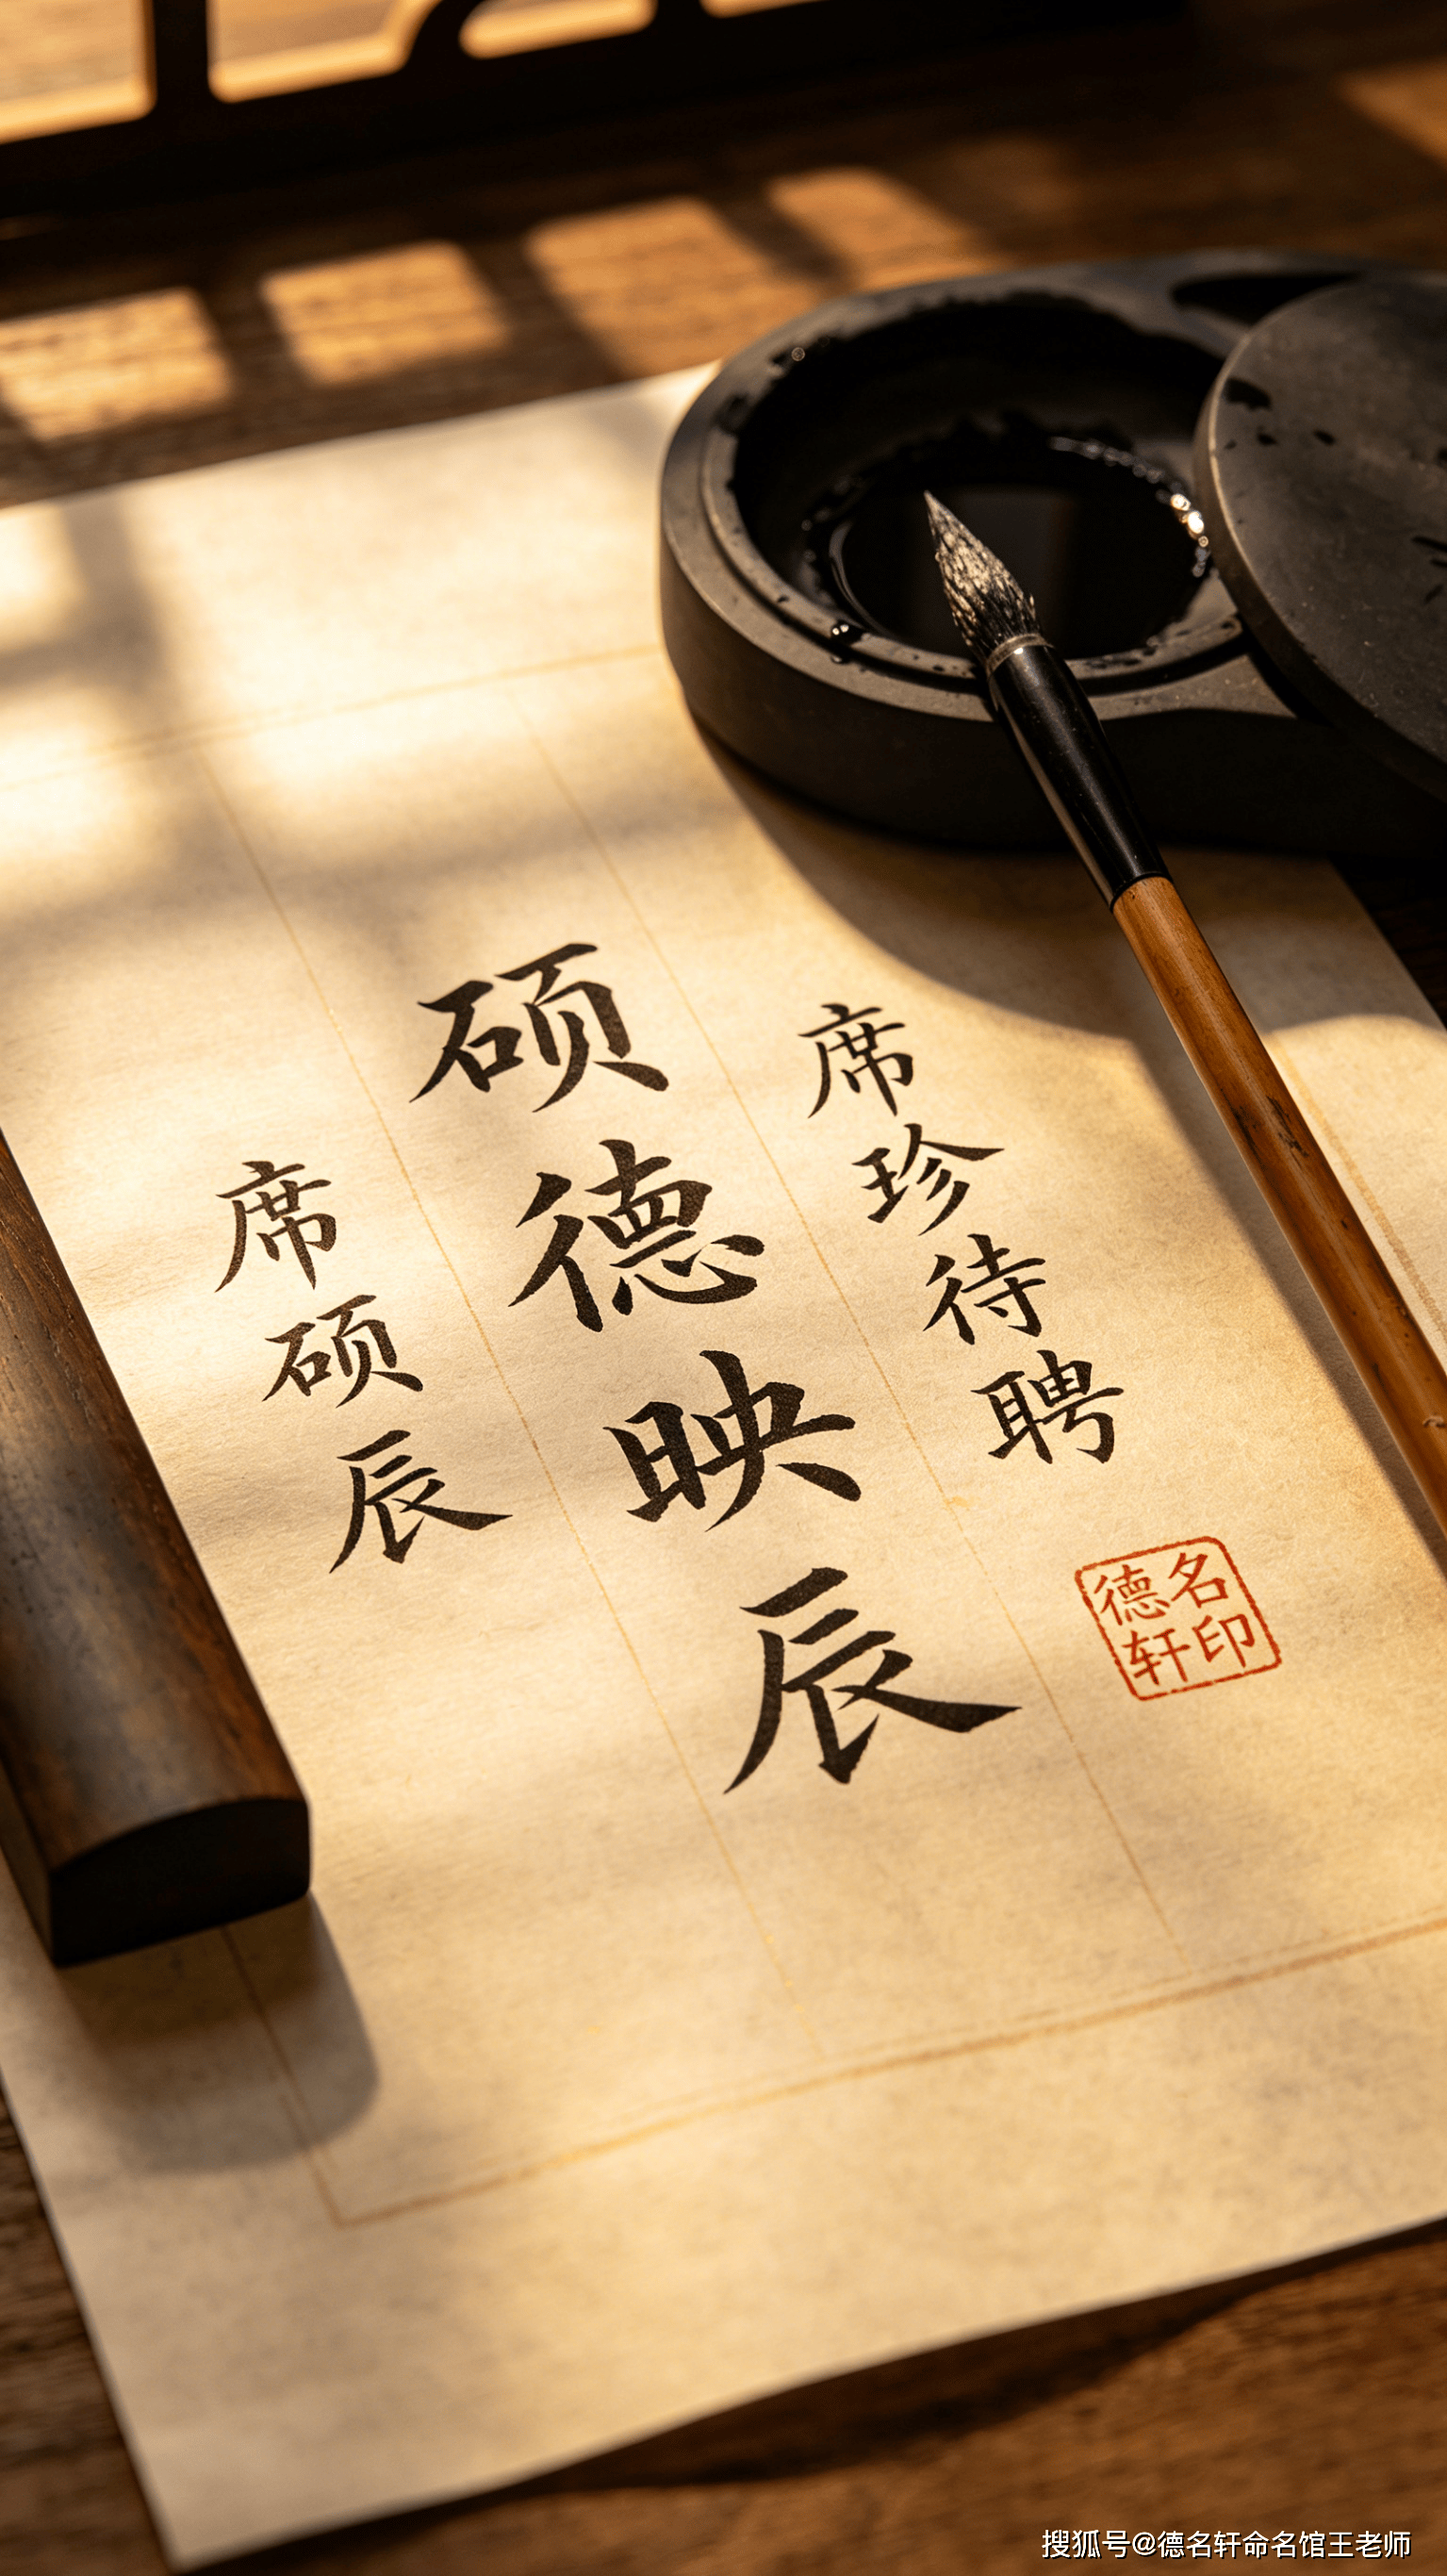 席珍待聘
硕德映辰
席硕辰
德名
轩印
搜狐号@德名轩命名馆王老师